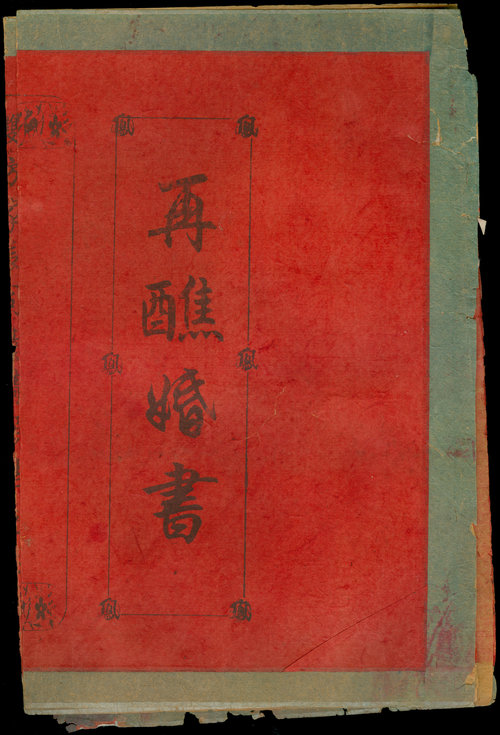 再醮婚書